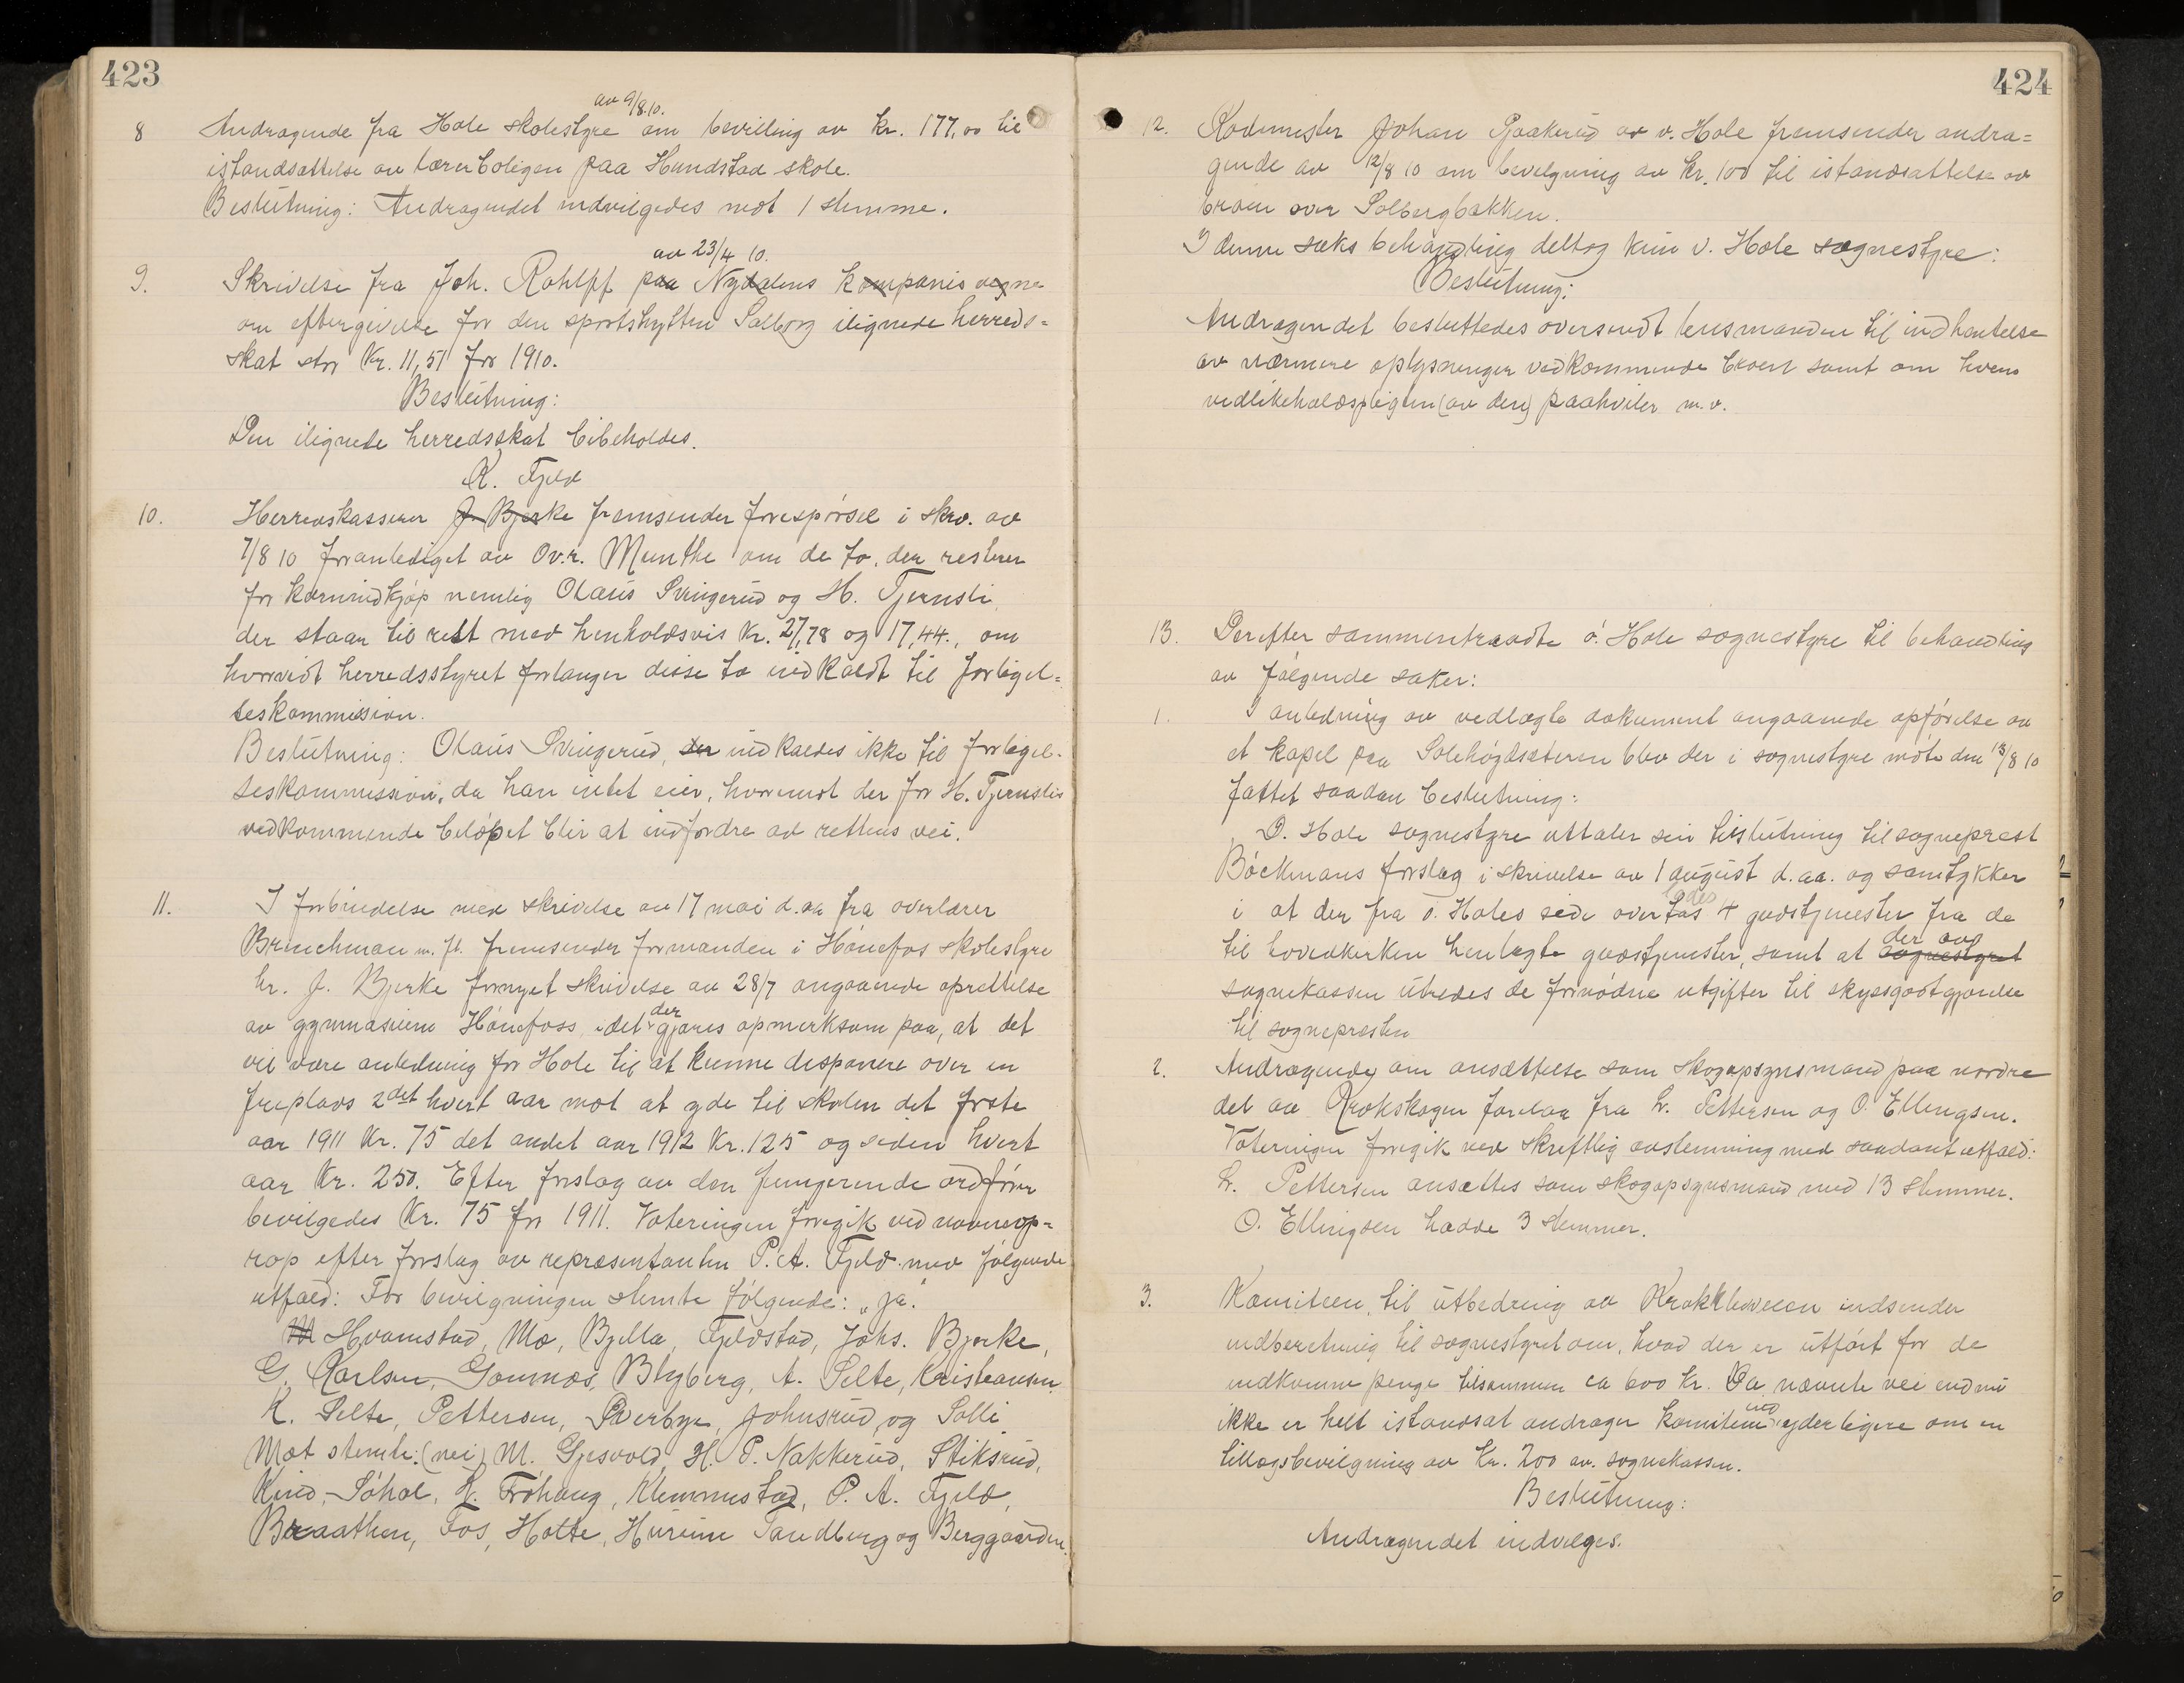 423
av 9/8.10.
8 Andragende fra Hole skolestyre om bevilling av kr. 177,00 til
istandsættelse av lærerboligen paa Hundstad skole.
Beslutning: Andragendet indvilgedes mot 1 stemme.
av 23/4 10.
9. Skrivelse fra Joh. Rohlff paa Nydalens kompanis vegne
om eftergivelse for den sportshytten Solborg ilignede herreds=
skat stor Kr. 11,51 for 1910.
Beslutning:
Den ilignede herredsskat bibeholdes.
K. Fjeld
10. Herredskasserer J. Bjerke fremsender forespørsel i skr. av
7/8 10 foranlediget av Ov.r. Munthe om de to, der resterer
for kornindkjøp nemlig Olaus Svingerud og H. Tjernsli,
der staar til rest med henholdsvis Kr. 27,78 og 17,44., om
hvorvidt herredsstyret forlanger disse to indkaldt til forligel=
seskommission.
Beslutning: Olaus Svingerud, der indkaldes ikke til forligel-
seskommission, da han intet eier, hvorimot der for H. Tjernslis
vedkommende beløpet blir at indfordre ad rettens vei.
11. I forbindelse med skrivelse av 17 mai d.aa fra overlærer
Brinchman m. fl. fremsender formanden i Hønefos skolestyre
hr. J. Bjerke fornyet skrivelse av 28/7 angaaende oprettelse
av gymnasium Hønefoss, idet der gjøres opmerksom paa, at det
vil være anledning for Hole til at kunne disponere over en
friplads 2det hvert aar mot at yde til skolen det første
aar 1911 Kr. 75 det andet aar 1912 Kr. 125 og siden hvert
aar Kr. 250. Efter forslag av den fungerende ordfører
bevilgedes Kr. 75 for 1911. Voteringen foregik ved navneop=
rop efter forslag av repræsentanten P. A. Fjeld med følgende
utfald: For bevilgningen stemte følgende: "ja."
M Hvamstad, Mo, Bjella, Fjeldstad, Johs. Bjerke,
G. Karlsen, Gomnæs, Blyberg, A. Selte, Kristiansen
K. Selte, Pettersen, Øverbye, Johnsrud, og Solli
Mot stemte: (nei) M. Gjesvold, H. P. Nakkerud, Stiksrud,
Kind, Søhol, L. Frøhaug, Klemmetstad, P. A. Fjeld,
Braathen, Fos, Holte, Hurum Tandberg og Berggaarden.
424
12. Rodemester Johan Pjaakerud av v. Hole fremsender andra=
gende av 12/8 10 om bevilgning av Kr. 100 til istandsættelse av
broen over Solbergbækken.
I denne saks behandling deltog kun v. Hole sognestyre:
Beslutning:
Andragendet besluttedes oversendt lensmanden til indhentelse
av nærmere oplysninger vedkommende broen samt om hvem
vedlikeholdspligten (av den) paahviler m.v.
13. Derefter sammentraadte ø. Hole sognestyre til behandling
av følgende saker:
1. I anledning av vedlagte dokument angaaende opførelse av
et kapel paa Solehøgdsæteren blev der i sognestyre møte den 18/8 10
fattet saadan beslutning:
"Ø. Hole sognestyre uttaler sin tilslutning til sogneprest
Bøckmans forslag i skrivelse av 1 august d.aa. og samtykker
i at der fra ø. Holes side overlades 4 gudstjenester fra de
til hovedkirken henlagte gudstjenester, samt at sognestyret der av
sognekassen utredes de fornødne utgifter til skyssgodtgjørelse
til sognepresten
2. Andragende om ansættelse som skogopsynsmand paa nordre
del av Krokskogen forelaa fra L. Pettersen og O. Ellingsen.
Voteringen foregik ved skriftlig avstemning med saadant utfald:
L. Pettersen ansættes som skogopsynsmand med 13 stemmer.
O. Ellingsen hadde 3 stemmer.
3. Komiteen til utbedring av Krokklevveien indsender
indberetning til sognestyret om, hvad der er utført for de
indkomne penge tilsammen ca 600 Kr. Da nævnte vei endnu
ikke er helt istandsat andrager komiteen ind yderligere om en
tillægsbevilgning av Kr. 200 av sognekassen.
Beslutning:
Andragendet indvilges.